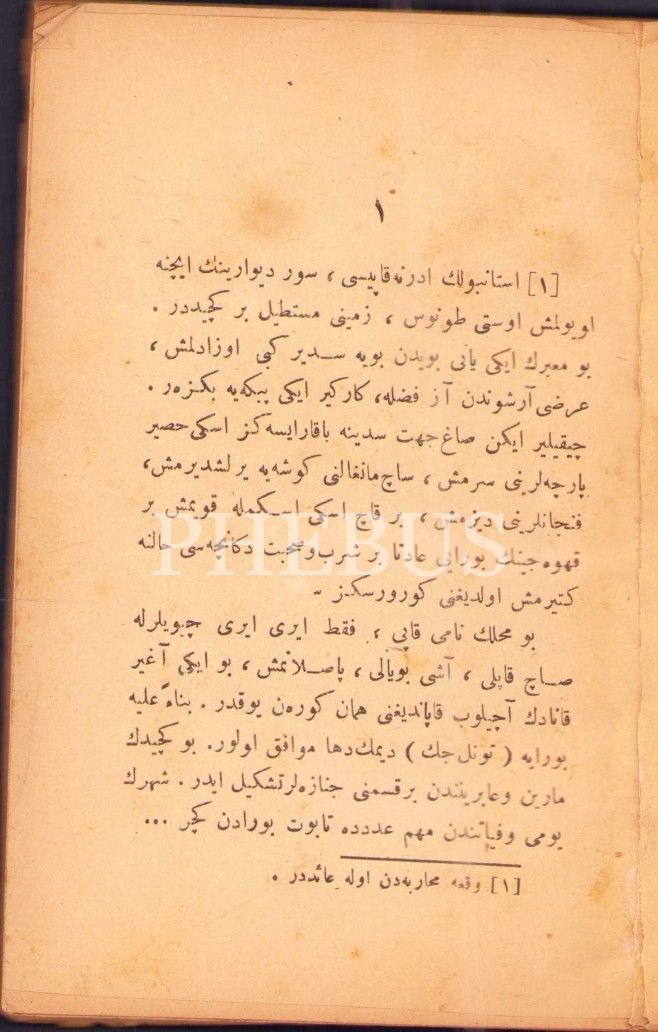 ١
[١] استانبولك ادرنه قاپیسی ، سور دیوارینك ایچنه
اویولمش اوستی طونوس ، زمینی مستطیل بر كچیددر .
بو معبرك ایكی یانی بویدن بویه سدیر كبی اوزادلمش ،
عرضی آرشوندن آز فضله، كارگیر ایكی پیكه یه بكزه ر .
چیقیلیر ایكن صاغ جهت سدینه باقارایسه كز اسكی حصیر
پارچه لرینی سرمش ، ساج مانغالنی كوشه یه یرلشدیرمش،
فنجانلرینی دیزمش ، بر قاچ اسكی اسكمله قویمش بر
قهوه جینك بورایی عادتا بر شرب و صحبت دكانچه سی حالنه
كتیرمش اولدیغنی كورورسكز .
بو محلك نامی قاپی ، فقط ایری ایری چیویلرله
صاچ قاپلی ، آشی بویالی ، پاصلانمش ، بو ایكی آغیر
قانادك آچیلوب قاپاندیغنی همان كوره ن یوقدر . بناءً علیه
بورایه ( تونل جك ) دیمك دها موافق اولور. بو كچیدك
مارین وعابریندن برقسمنی جنازه لر تشكیل ایدر . شهرك
یومی وفیاتندن مهم عددده تابوت بورادن كچر ...
[١] وقعه محاربه دن اوله عائددر .
PHEBUS